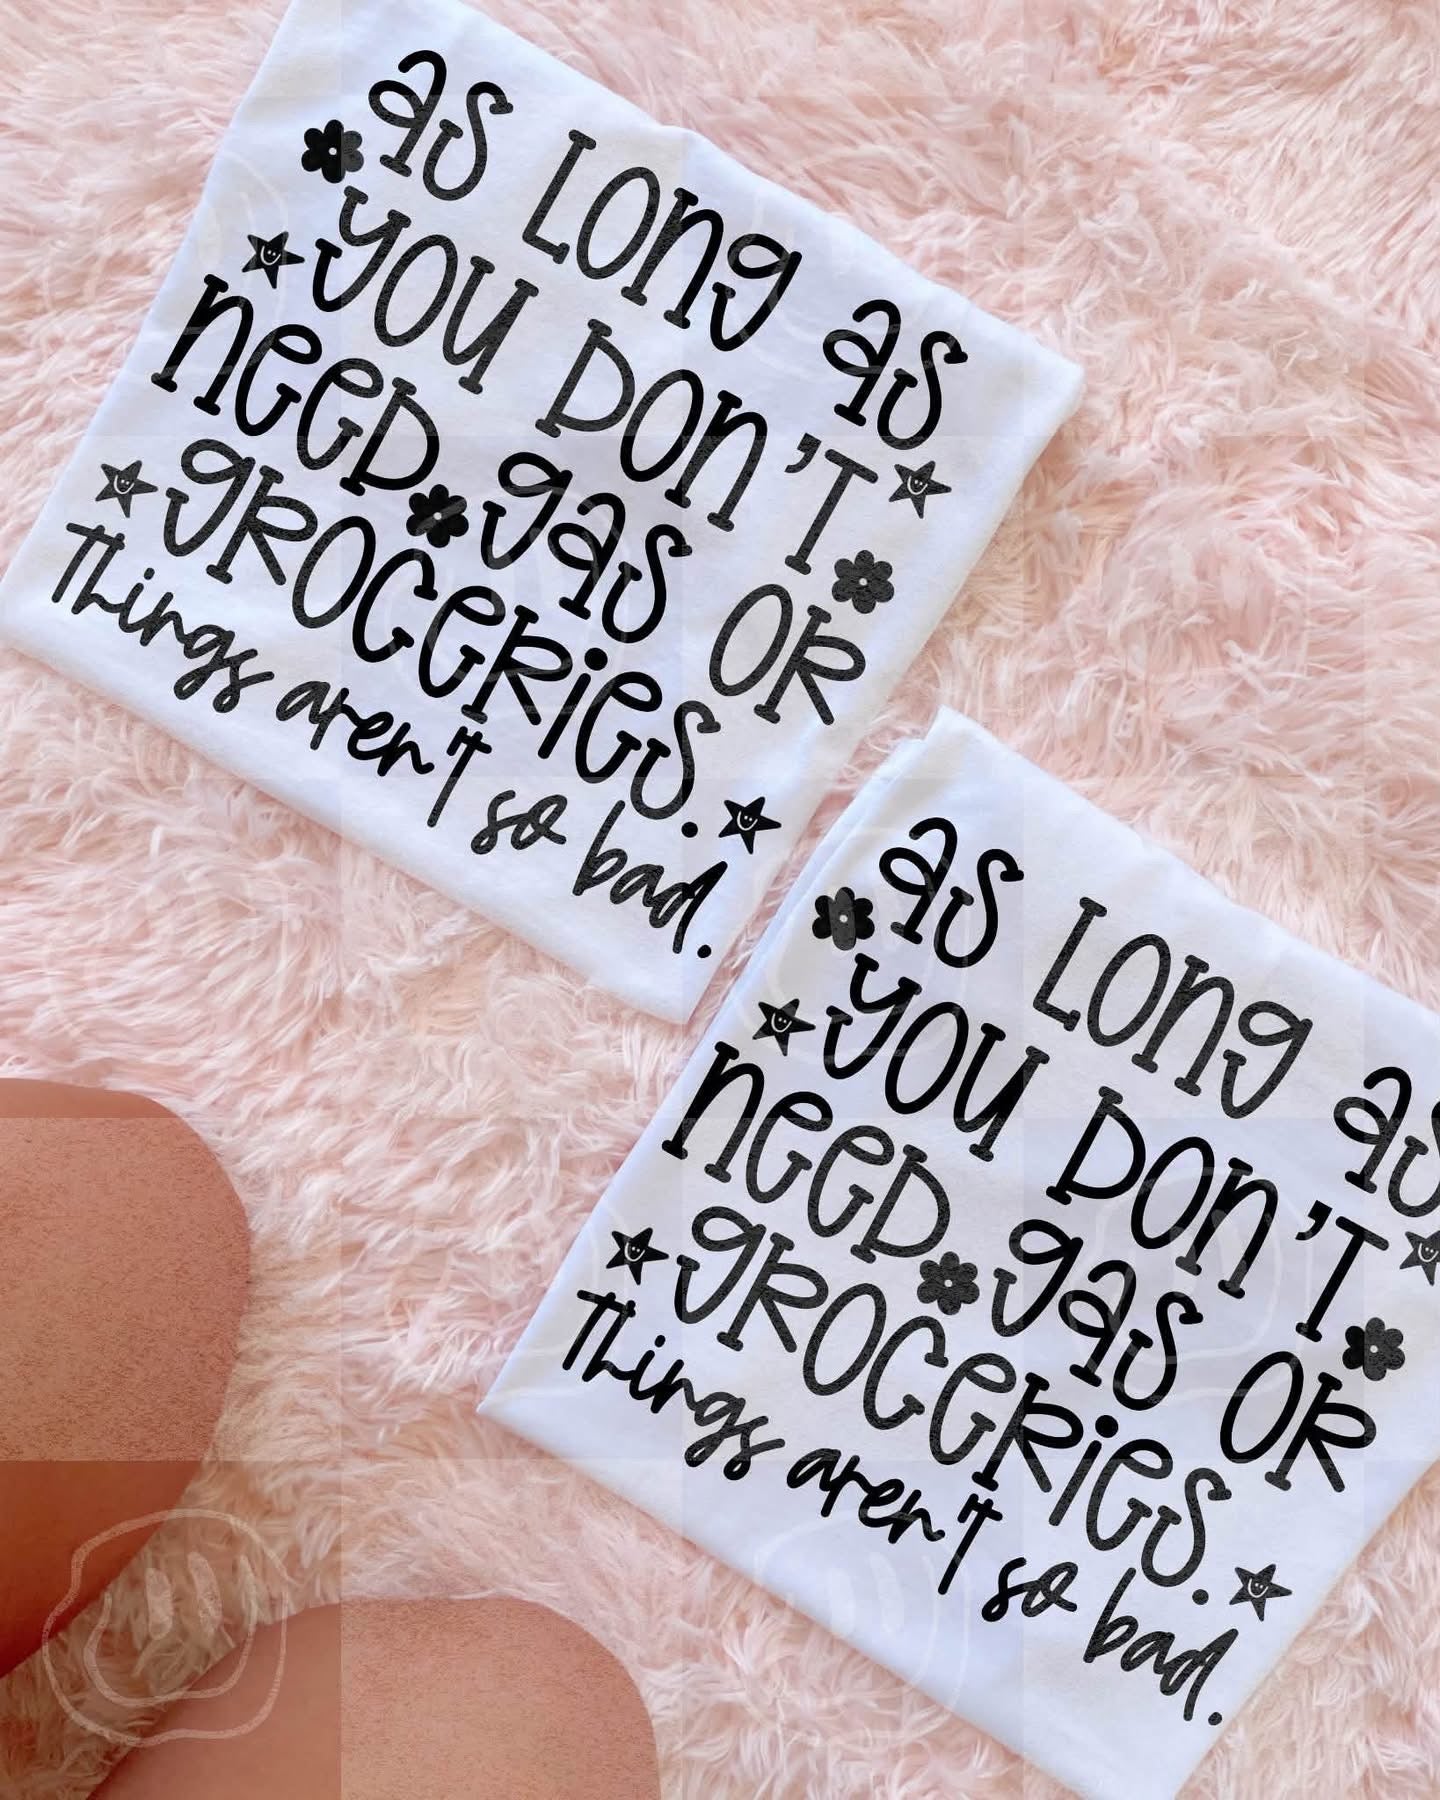 as Long as
you Don't
neeD gas or
groceries.
Things aren't so bad.
as Long as
you Don't
neeD gas or
groceries.
Things aren't so bad.